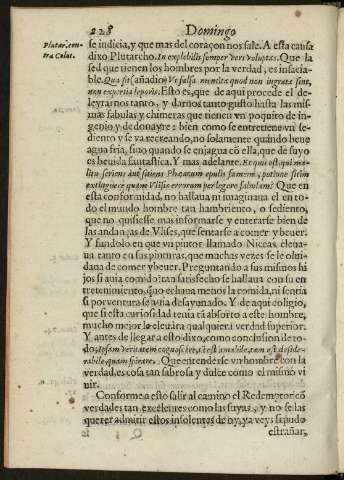 228 Domingo
Plutar. con-
tra Colot.
se indicia, y que mas del coraçon nos sale. A esta causa
dixo Plutarcho. In explebilis semper veri voluptas. Que la
sed que tienen los hombres por la verdad, es insacia-
ble. Qua sit (añadio) Ve falsa non ingrata sint,
non expertia leporis. Esto es, que de aqui procede el de-
leytarnos tanto, y darnos tanto gusto hasta las mis-
mas fabulas y chimeras que tienen vn poquito de in-
genio y de donayre: bien como se entretiene vn se-
diento y se va recreando, no solamente quando beue
agua fria, sino quando se enjagua cõ ella, que de suyo
es beuida fantastica. Y mas adelante. Et qui est, qui ma-
lit esuriens aut sitiens Pheacum epulis saturari, potiune sitim
extinguere quam Vlissis errorum perlegere fabulam? Que en
esta conformidad, no hallaua ni imaginaua el en to-
do el mundo hombre tan hambriento, o sediento,
que no quisiesse mas informarse y enterarse bien de
las andanças de Vlises, que sentarse a comer y beuer.
Y fundolo en que vn pintor llamado Niceas, eleua-
ua tanto en sus pinturas, que muchas vezes se le olui-
daua de comer y beuer. Preguntando a sus mismos hi-
jos si auia comido: tan satisfecho se hallaua con su en-
tretenimiento, q̃ no echaua menos la comida, ni sentia
si por ventura se auia desayunado. Y de aqui coligio,
que si esta curiosidad tenia tã absorto a este hombre,
mucho mejor lo eleuara qualquiera verdad superior.
Y antes de llegar a esto dixo, como conclusion de to-
do: Ipsam veritatem cognoscere, res est amabilis, tam est deside-
rabile, quam spirare. Que entenderse vn hombre con la
verdad, es cosa tan sabrosa y dulce como el mismo vi
uir.
Conforme a esto salir al camino el Redemptor cõ
verdades tan excelẽtes como las suyas, y no se las
querer admitir estos insolentes de oy, ya veys si pudo
estrañar,